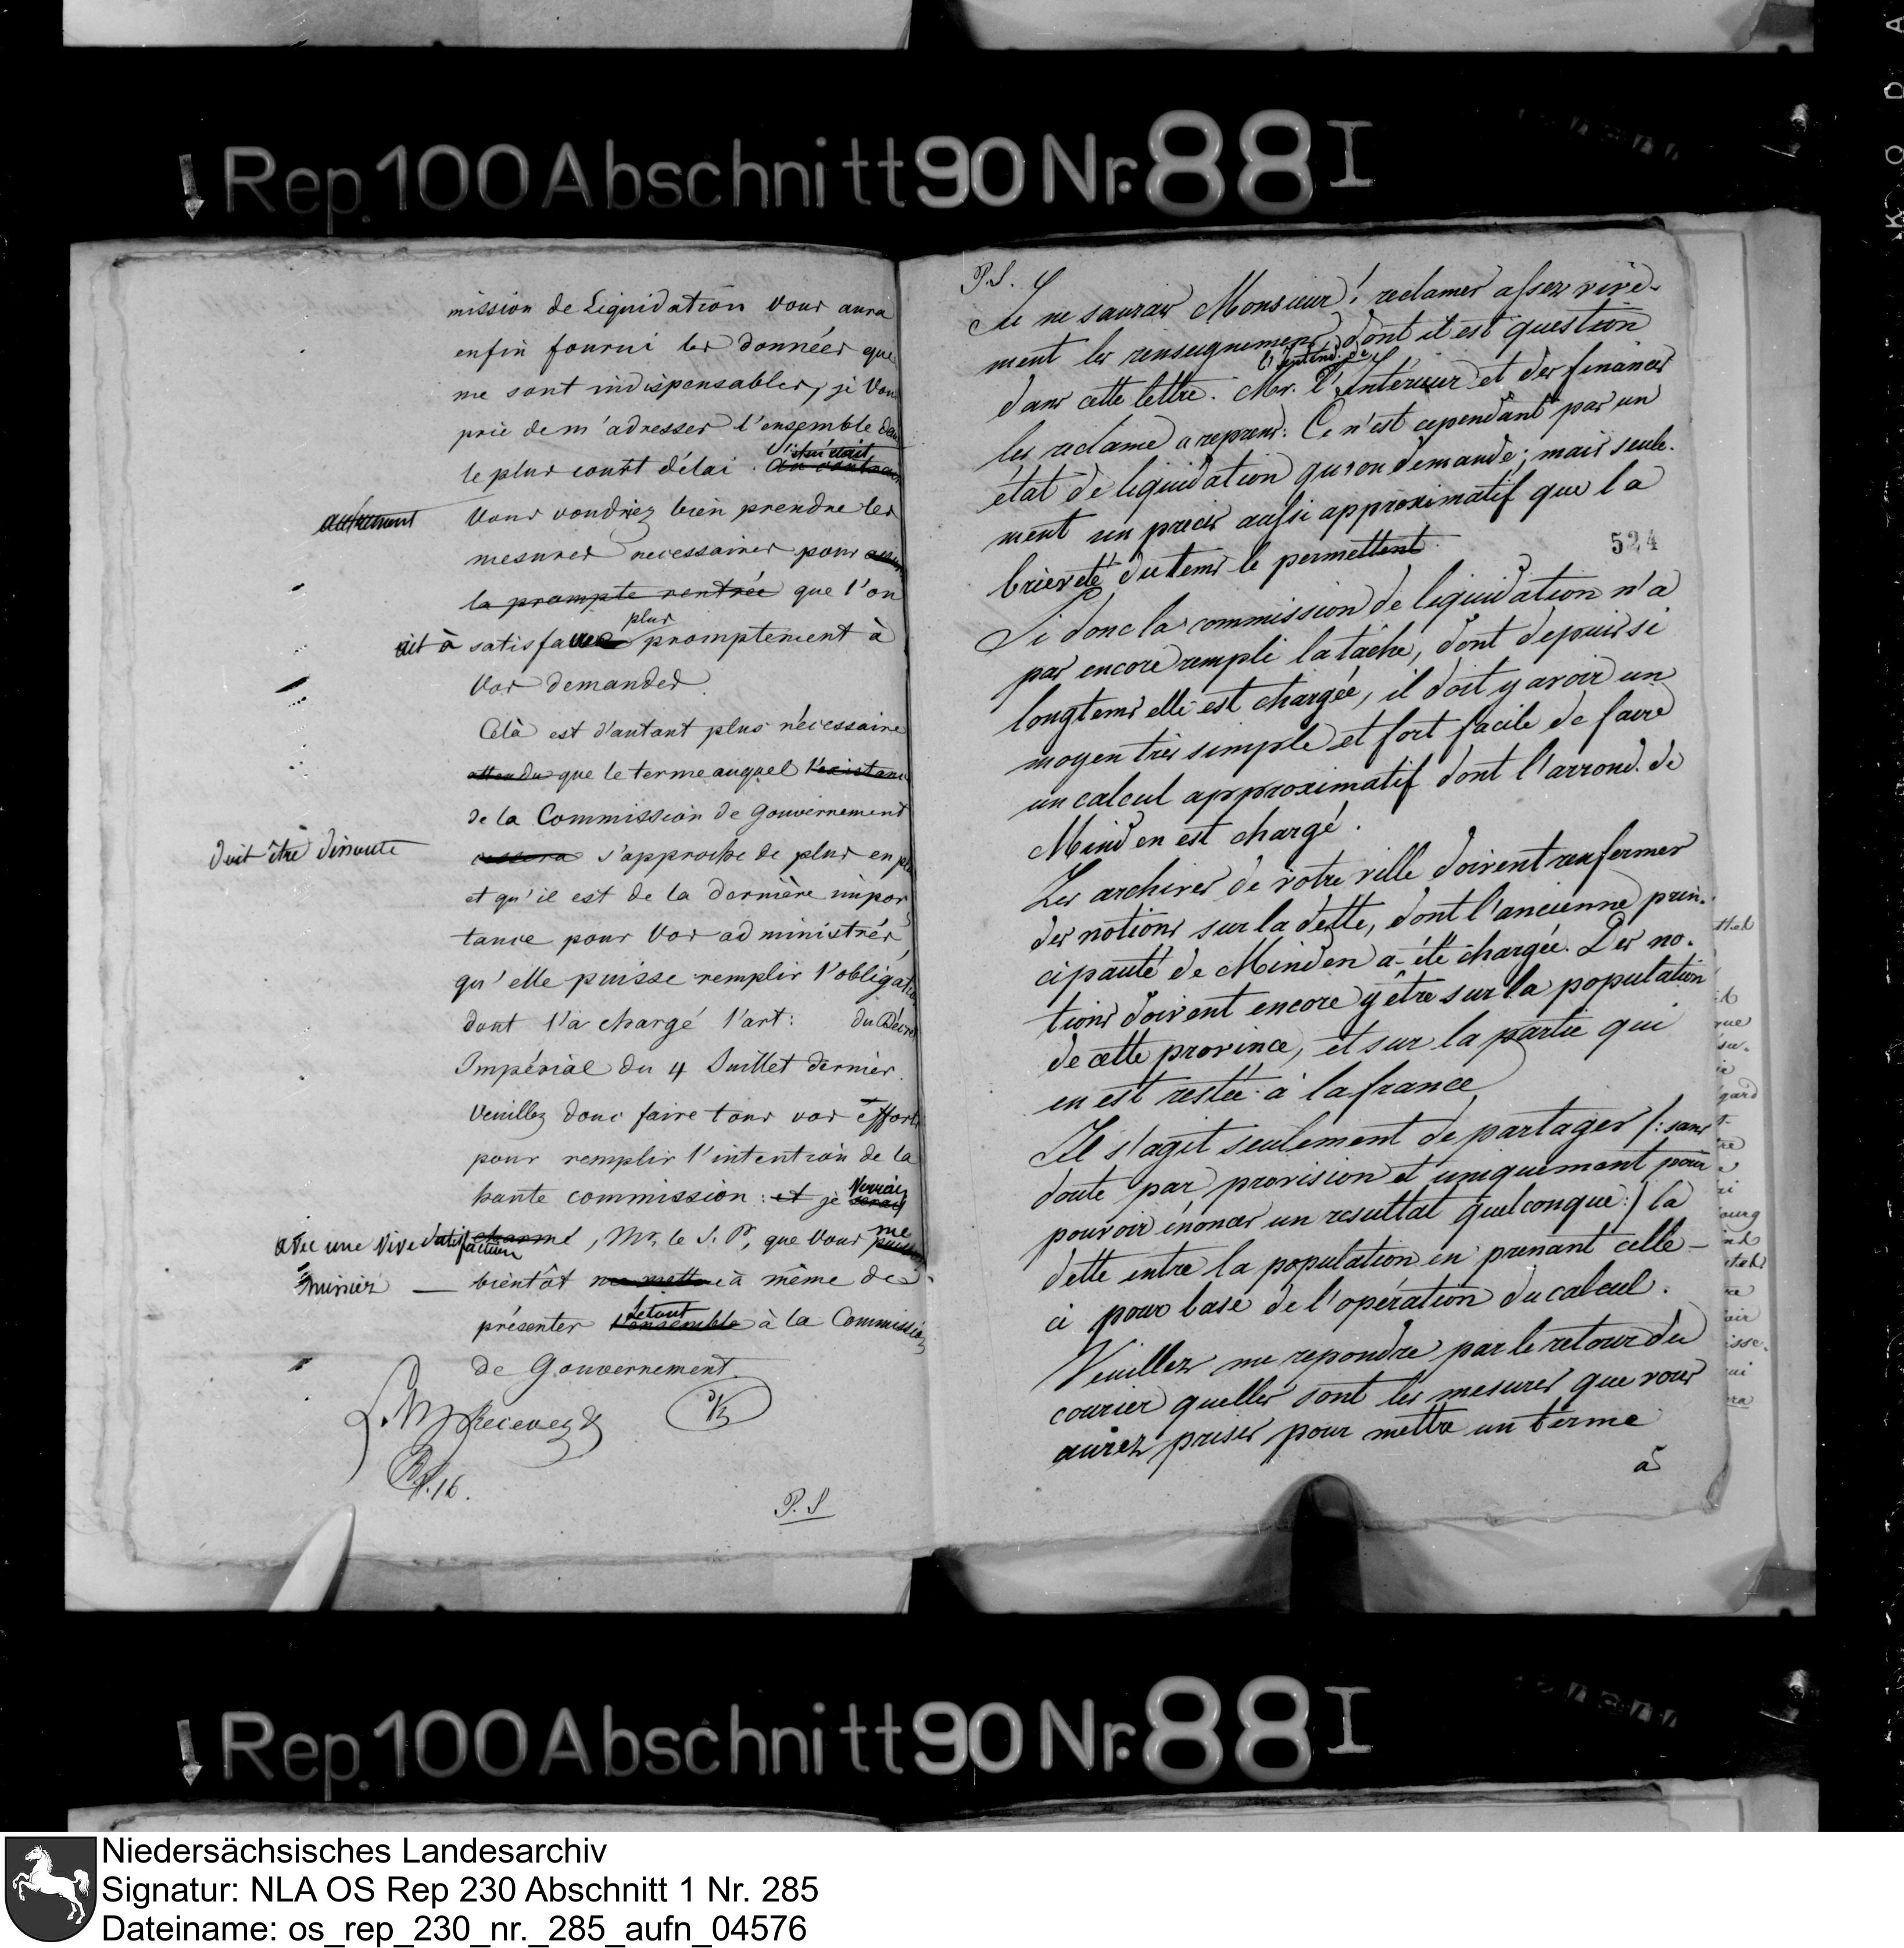 Rep. 100 Abschnitt 90 Nr. 88 I
mission de Liquidation vous aura
enfin fourni les données que
me sont indispensables, je vous
prie de m'adresser l'ensemble dans
le plus court délai. S'il en était
autrement vous voudriez bien prendre les
mesures necessaires pour
la prompte rentrée que l'on
ait à satisfaire plus promptement à
vos demandes.
Celà est d'autant plus nécessaire
attendu que le terme auquel l'existance
de la Commission de Gouvernement
doit être dissoute cessera s'approche de plus en plus
et qu'il est de la dernière impor
tance pour vos administrés
qu'elle puisse remplir l'obligation
dont l'a chargé l'art: du Décret
Impérial du 4 Juillet dernier.
Veuillez donc faire tous vos efforts
pour remplir l'intention de la
haute commission: et je verrais serais
avec une vive satisfaction charmé, Mr. le S. P., que vous me puissiez
bientôt me mettre à même de
présenter le tout l'ensemble à la Commission
de Gouvernement.
P. S
P. S.
Je ne saurais Monsieur! reclamer assez vive-
ment les renseignemens, dont il est question
dans cette lettre. Mr. l'intend. de l'Intérieur et des finances
les reclame a reprens: Ce n'est cependant pas un
état de liquidation qu'on demande; mais seule-
ment un precis aussi approximatif que la
brieveté du tems le permettent.
524
Si donc la commission de liquidation n'a
pas encore rempli la tâche, dont depuis si
longtems elle est chargée, il doit y avoir un
moyen très simple et fort facile de faire
un calcul approximatif dont l'arrond. de
Minden est chargé.
Les archives de votre ville doivent renfermer
des notions sur la dette, dont l'ancienne prin-
cipauté de Minden a été chargée. Des no-
tions doivent encore y être sur la population
de cette province, et sur la partie qui
en est restée à la france
Il s'agit seulement de partager /: sans
doute par provision et uniquement pour
pouvoir énoncer un resultat quelconque :/ la
dette entre la population en prenant celle-
ci pour base de l'opération du calcul.
Veuillez me repondre par le retour du
courier quelles sont les mesures que vous
aurez prises pour mettre un terme
à
Rep. 100 Abschnitt 90 Nr. 88 I
Niedersächsisches Landesarchiv
Signatur: NLA OS Rep 230 Abschnitt 1 Nr. 285
Dateiname: os_rep_230_nr._285_aufn_04576